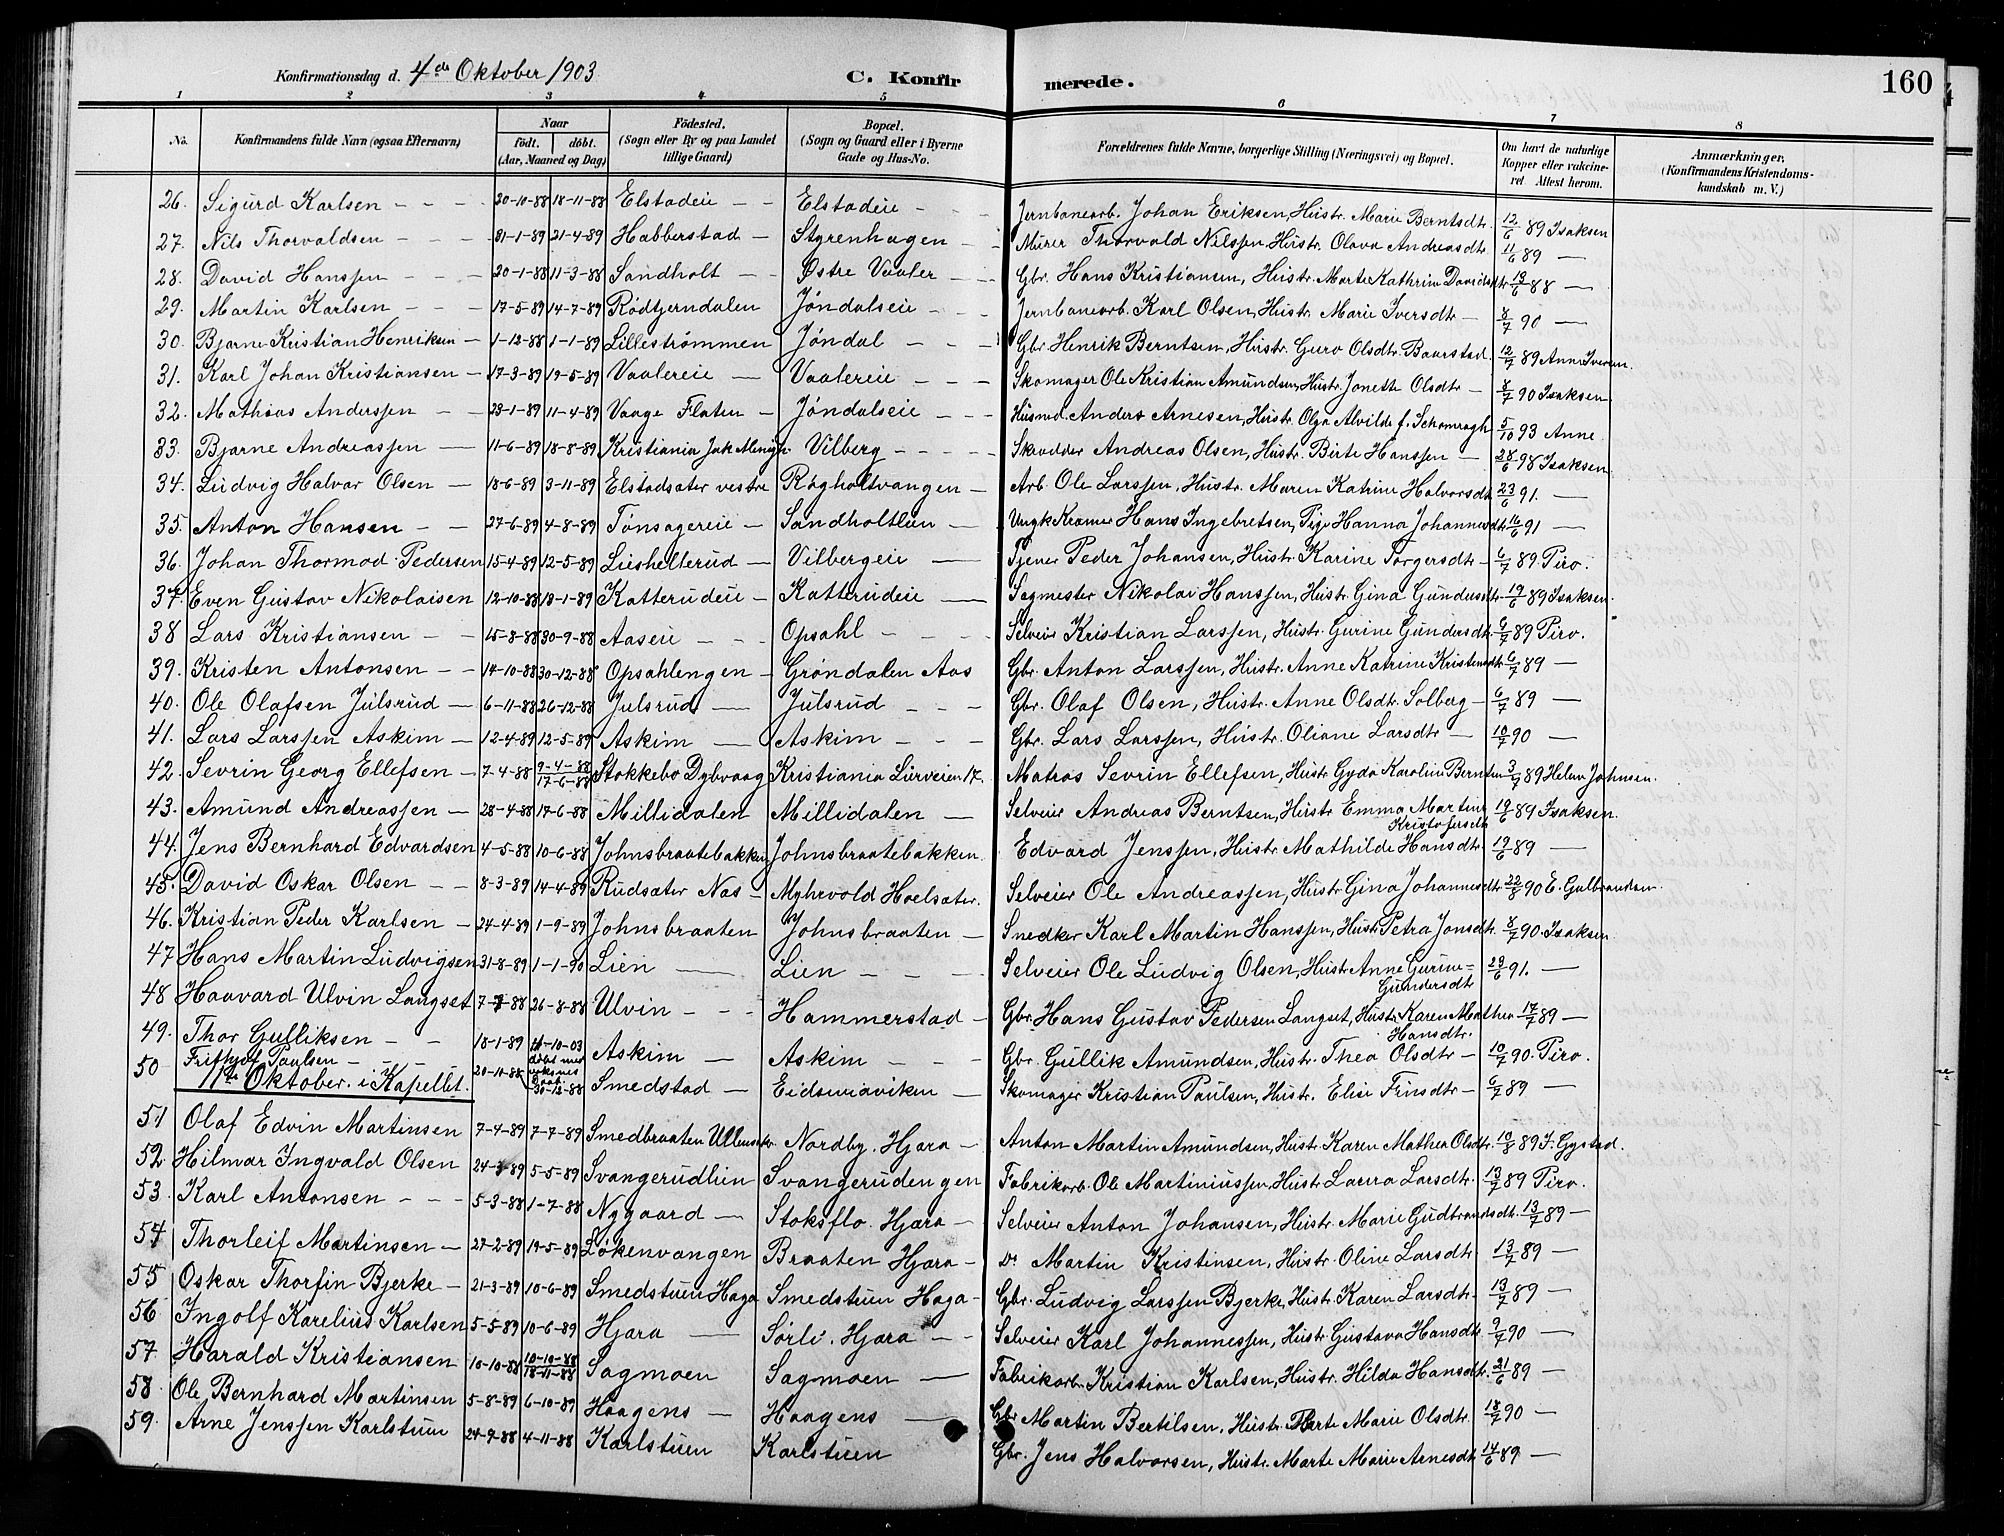 Konfirmationsdag d. 4de Oktober 1903 C. Konfirmerede. 160
1 2 3 4 5 6 7 8
No. Konfirmandens fulde Navn (ogsaa Efternavn) Naar født. døbt. (Aar, Maaned og Dag) Fødested. (Sogn eller By og paa Landet tillige Gaard) Bopæl. (Sogn og Gaard eller i Byerne Gade og Hus-No. Forældrenes fulde Navne, borgerlige Stilling (Næringsvei) og Bopæl. Om havt de naturlige Kopper eller vakcineret Attest herom. Anmærkninger. (Konfirmandens Kristendomskundskab m. V.)
26. Sigurd Karlsen - - - 20-10-88 18-11-88 Elstadeie - - Elstadeie - - - Jernbanearb. Johan Eriksen, Hustr. Marie Berntsdtr. 12/6 89 Isaksen
27. Nils Thorvaldsen - - - 31-1-89 21-4-89 Habberstad - Styrenhagen - - Murer Thorvald Nilssen, Hustr. Olava Andreasdtr. 11/6 89 —
28. David Hanssen - - - 20-1-88 11-3-88 Sandholt - - Østre Vaaler - - Gbr. Hans Kristiansen, Hustr. Marte Kathrine Davidsdtr 13/6 88 —
29. Martin Karlsen - - - 17-5-89 14-7-89 Rödtjerndalen Jøndalseie - - - Jernbanearb. Karl Olsen, Hustr. Marie Iversdtr - 8/7 90 —
30. Bjarne Kristian Henriksen - 1-12-88 1-1-89 Lillestrømmen Jøndal - - - Gbr. Henrik Berntsen, Hustr. Guro Olsdtr. Baarstad. 12/7 89 Anne Iversen.
31. Karl Johan Kristiansen - 17-3-89 19-5-89 Vaalereie - Vaalereie - - - Skomager Ole Kristian Amundsen, Hustr. Jonette Olsdtr - 8/7 90 Isaksen
32. Mathias Anderssen - - 23-1-89 11-4-89 Vaage Flaten - Jøndalseie - - - Husmd. Anders Arnesen, Hustr. Olga Alvilde f. Schamragh 5/10 93 Anne
33. Bjarne Andreassen - 11-6-89 18-8-89 Kristiania Jak Menigh. Vilberg - - - - Skrædder Andreas Olsen, Hustr. Birte Hanssen - 28/6 98 Isaksen
34. Ludvig Halvar Olsen - 18-6-89 3-11-89 Elstadsæter vestre Røgholtvangen - Arb. Ole Larssen, Hustr. Maren Katrine Halvorsdtr 23/6 91. —
35. Anton Hansen - - 27-6-89 4-8-89 Tønsagereie - Sandholtlien - Ungk Kramer Hans Ingebretsen, Pige Hanna Johannesdtr. 16/6 91 —
36. Johan Thormod Pedersen 15-4-89 12-5-89 Lieshellerud - Vilbergeie - Tjener Peder Johansen, Hustr. Karine Torgersdtr - 6/7 89 Piro.
37. Even Gustav Nikolaisen 12-10-88 18-1-89 Katterudeie - Katterudeie - Sagmester Nikolai Hanssen, Hustr. Gina Gundersdtr. 19/6 89 Isaksen.
38 Lars Kristiansen - - 15-8-88 30-9-88 Aaseie - - Opsahl - - - Selveier Kristian Larssen, Hustr. Gurine Gundersdtr. 6/7 89 Piro.
39. Kristen Antonsen - - 14-10-88 30-12-88 Opsahlengen - Grøndalen Aas Gbr. Anton Larssen, Hustr. Anne Katrine Kristensdtr 6/7 89 —
40. Ole Olafsen Julsrud - 6-11-88 26-12-88 Julsrud - Julsrud - - - Gbr. Olaf Olsen, Hustr. Anne Olsdtr. Solberg - 6/7 89 —
41. Lars Larssen Askim - 12-4-89 12-5-89 Askim - Askim - - - Gbr. Lars Larssen, Hustr. Oliane Larsdtr - 10/7 90 —
42. Sevrin Georg Ellefsen - 7-4-88 9-4-88 17-6-88 Stokkebo Dybvaag Kristiania Lürveien 17. Matros Sevrin Ellefsen, Hustr Gyda Karoline Berntsen 3/7 89 Helene Johnsen.
43. Amund Andreassen - 28-4-88 17-6-88 Millidalen Millidalen - Selveier Andreas Berntsen, Hustr Emma Martine Kristofersdtr 19/6 89 Isaksen.
44. Jens Bernhard Edvardsen 4-5-88 10-6-88 Johnsbraatebakken Johnsbraatebakken. Edvard Jenssen, Hustr Mathilde Hansdtr 19/6 89 —
45. David Oskar Olsen - - 8-3-89 14-4-89 Rudsæter Næs - Myhrvold Hoelsæter. Selveier Ole Andreassen, Hustr Gina Johannesdtr 22/8 90 E. Gulbrandsen.
46. Kristian Peder Karlsen - 24-4-89 1-9-89 Johnsbraaten Johnsbraaten - Snedker Karl Martin Hanssen, Hustr. Petra Jonsdtr. 8/7 90. Isaksen
47 Hans Martin Ludvigsen 31-8-89 1-1-90 Lien - Lien - - - Selveier Ole Ludvig Olsen, Hustr Anne Gurine Gundersdtr 23/6 91. —
48 Haavard Ulvin Langset 7-7-88 26-8-88 Ulvin - - - Hammerstad - Gbr. Hans Gustav Pedersen Langset, Hustr. Karen Mathea Hansdtr. 17/7 89 —
49. Thor Gulliksen - - 18-1-89 4-10-03 Askim - Askim - - Gbr. Gullik Amundsen, Hustr. Thea Olsdtr - 10/7 90. Piro.
50 Frithjof Paulsen - - 20-11-88 30-12-88 Smedstad - Eidsvoaviken - Skomager Kristian Paulsen, Hustr. Elise Finsdtr - 6/7 89 —
11te Oktober. i Kapellet.
51 Olaf Edvin Martinsen 7-4-89 7-7-89 Smedbraaten Ullensaker Nordby. Hjera - Anton Martin Amundsen, Hustr. Karen Mathea Olsdtr. 10/8 89 J. Gystad.
52. Hilmar Ingvald Olsen 24-3-89 5-5-89 Svangerudlien Svangerudengen Fabrikarb. Ole Martiniussen, Hustr. Laura Larsdtr. 13/7 89 Piro.
53. Karl Antonsen - - - 5-3-88 1-7-88 Nygaard - Stoksflo. Hjera - Selveier Anton Johansen, Hustr. Marie Gudbrandsdtr. 13/7 89 —
54 Thorleif Martinsen - 27-2-89 19-5-89 Løkenvangen Braaten Hjera - Do. Martin Kristinsen, Hustr. Oline Larsdtr. 13/7 89 —
55 Oskar Thorfin Bjerke - 21-3-89 10-6-89 Smedstuen Haga Smedstuen Haga - Gbr. Ludvig Larssen Bjerke, Hustr. Karen Larsdtr. 13/7 89 —
56 Ingolf Karelius Karlsen 5-5-89 10-6-89 Hjera - Sørli. Hjera - - Selveier Karl Johannessen, Hustr Gustava Hansdtr. 9/7 90 —
57. Harald Kristiansen 10-10-88 10-10-88 18-11-88 Sagmoen Sagmoen - Fabrikarb. Kristian Karlsen, Hustr. Hilda Hansdtr. 21/6 89 —
58. Ole Bernhard Martinsen 5-8-89 6-10-89 Haagens - Haagens - Gbr Martin Bertilsen, Hustr. Berte Marie Olsdtr. 18/7 90 —
59. Arne Jenssen Karlstuen 24-9-88 4-11-88 Karlstuen Karlstuen Gbr. Jens Halvorsen, Hustr. Marte Marie Arnesdtr. 14/6 89 —